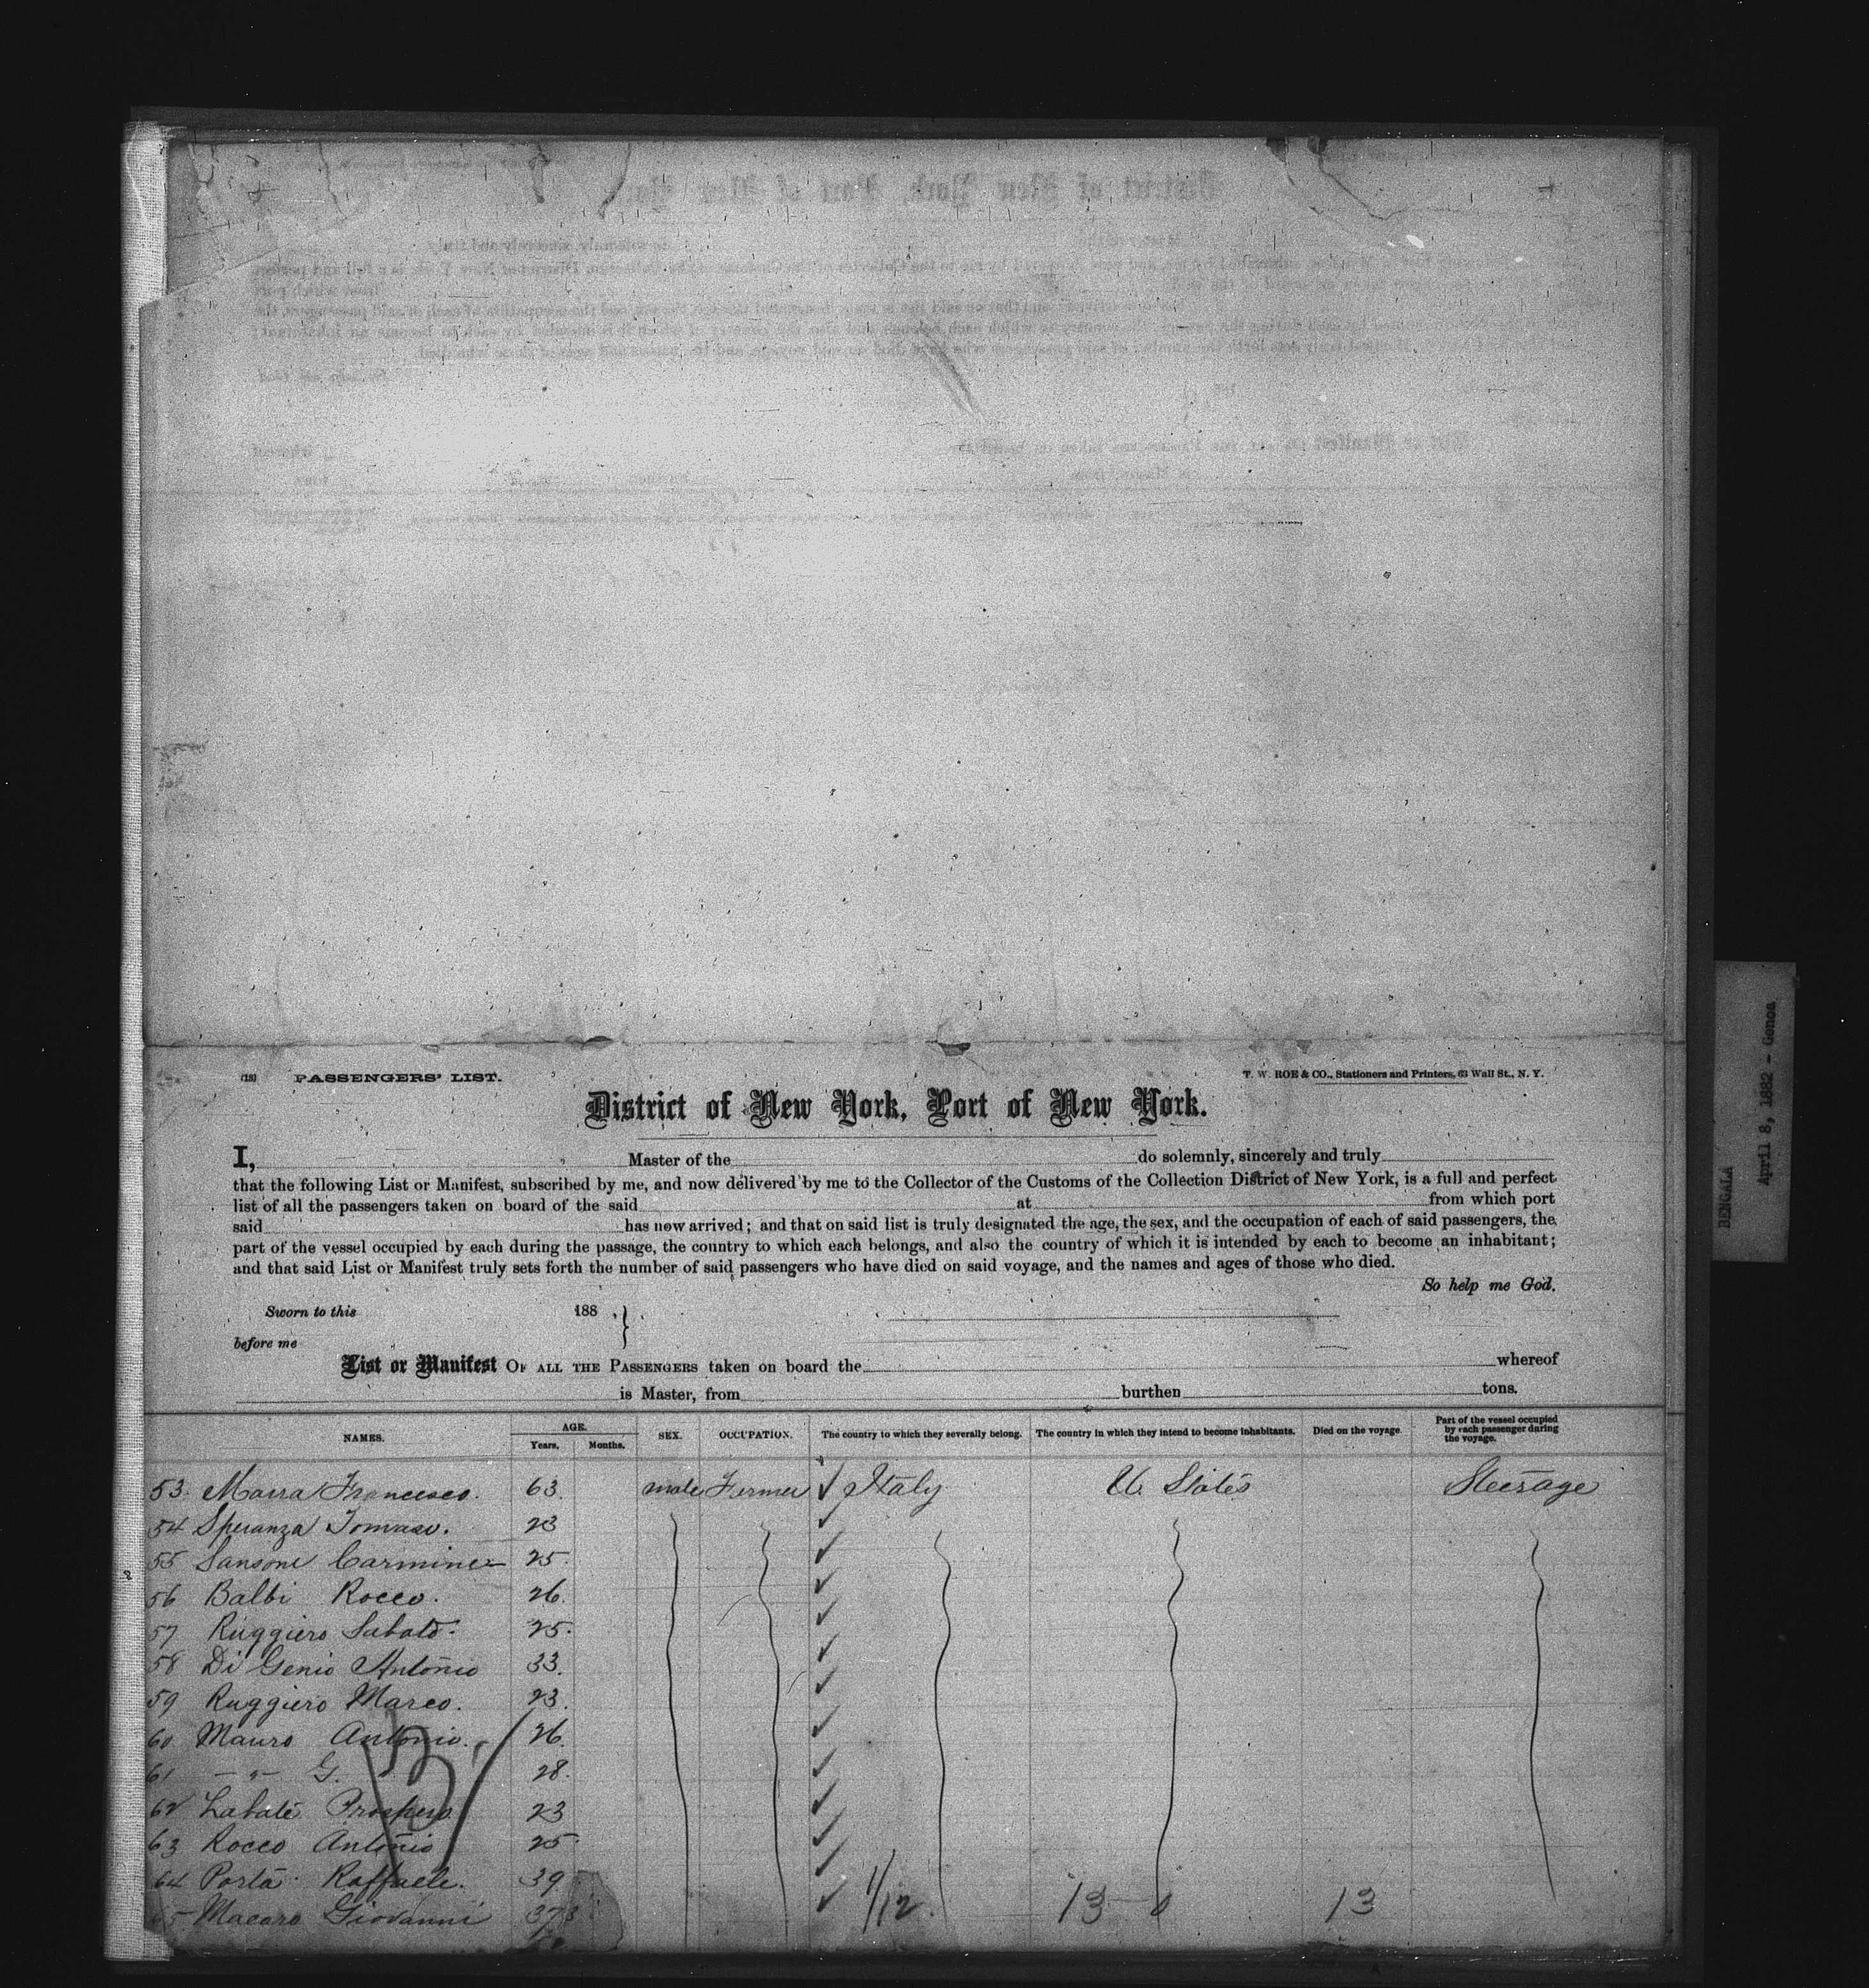 (18) PASSENGERS' LIST. T. W. ROE & CO., Stationers and Printers, 63 Wall St., N. Y.
District of New York, Port of New York.
I, Master of the do solemnly, sincerely and truly
that the following List or Manifest, subscribed by me, and now delivered by me to the Collector of the Customs of the Collection District of New York, is a full and perfect
list of all the passengers taken on board of the said at from which port
said has now arrived; and that on said list is truly designated the age, the sex, and the occupation of each of said passengers, the
part of the vessel occupied by each during the passage, the country to which each belongs, and also the country of which it is intended by each to become an inhabitant;
and that said List or Manifest truly sets forth the number of said passengers who have died on said voyage, and the names and ages of those who died.
So help me God.
Sworn to this 188 ,
before me
List or Manifest OF ALL THE PASSENGERS taken on board the whereof
is Master, from burthen tons.
NAMES. AGE. Years. Months. SEX. OCCUPATION. The country to which they severally belong. The country in which they intend to become inhabitants. Died on the voyage Part of the vessel occupied by each passenger during the voyage.
53 Marra Francesco. 63. male Farmer Italy U. States Steerage
54 Speranza Tomaso. 23
55 Sansone Carmine 25.
56 Balbi Rocco. 26.
57 Ruggiero Sabato. 25.
58 Di Genio Antonio 33.
59 Ruggiero Marco. 23.
60 Mauro Antonio. 26.
61 - " - G. 28.
62 Labate Prospero 23
63 Rocco Antonio 25
64 Porta Raffaele. 39
65 Macaro Giovanni 37 1/12. 13 0 13
BENGALA
April 8, 1882 - Genoa